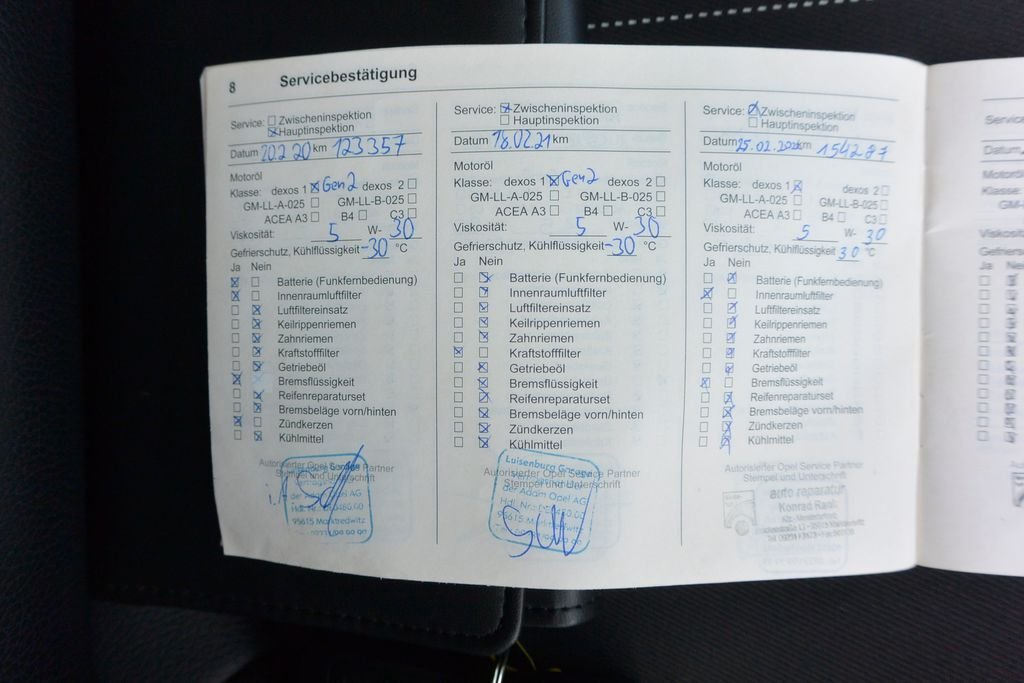 8 Servicebestätigung
Service: ☐ Zwischeninspektion
☒ Hauptinspektion
Datum 20.2.20 km 123357
Motoröl
Klasse: dexos 1 ☒ Gen2 dexos 2 ☐
GM-LL-A-025 ☐ GM-LL-B-025 ☐
ACEA A3 ☐ B4 ☐ C3 ☐
Viskosität: 5 W- 30
Gefrierschutz, Kühlflüssigkeit -30 °C
Ja Nein
☒ ☐ Batterie (Funkfernbedienung)
☒ ☐ Innenraumluftfilter
☐ ☒ Luftfiltereinsatz
☐ ☒ Keilrippenriemen
☐ ☒ Zahnriemen
☐ ☒ Kraftstofffilter
☐ ☒ Getriebeöl
☒ ☐ Bremsflüssigkeit
☐ ☒ Reifenreparaturset
☐ ☒ Bremsbeläge vorn/hinten
☒ ☐ Zündkerzen
☐ ☒ Kühlmittel
Autorisierter Opel Service Partner
Stempel und Unterschrift
der Adam Opel AG
95615 Marktredwitz
Service: ☒ Zwischeninspektion
☐ Hauptinspektion
Datum 18.02.21 km
Motoröl
Klasse: dexos 1 ☒ Gen2 dexos 2 ☐
GM-LL-A-025 ☐ GM-LL-B-025 ☐
ACEA A3 ☐ B4 ☐ C3 ☐
Viskosität: 5 W- 30
Gefrierschutz, Kühlflüssigkeit -30 °C
Ja Nein
☐ ☒ Batterie (Funkfernbedienung)
☐ ☒ Innenraumluftfilter
☐ ☒ Luftfiltereinsatz
☐ ☒ Keilrippenriemen
☐ ☒ Zahnriemen
☒ ☐ Kraftstofffilter
☐ ☒ Getriebeöl
☐ ☒ Bremsflüssigkeit
☐ ☒ Reifenreparaturset
☐ ☒ Bremsbeläge vorn/hinten
☐ ☒ Zündkerzen
☐ ☒ Kühlmittel
Autorisierter Opel Service Partner
Stempel und Unterschrift
Luisenburg Garage
der Adam Opel AG
95615 Marktredwitz
Service: ☒ Zwischeninspektion
☐ Hauptinspektion
Datum 25.02.2022 km 154287
Motoröl
Klasse: dexos 1 ☒ dexos 2 ☐
GM-LL-A-025 ☐ GM-LL-B-025 ☐
ACEA A3 ☐ B4 ☐ C3 ☐
Viskosität: 5 W- 30
Gefrierschutz, Kühlflüssigkeit 30 °C
Ja Nein
☐ ☒ Batterie (Funkfernbedienung)
☒ ☐ Innenraumluftfilter
☐ ☒ Luftfiltereinsatz
☐ ☒ Keilrippenriemen
☐ ☒ Zahnriemen
☐ ☒ Kraftstofffilter
☐ ☒ Getriebeöl
☒ ☐ Bremsflüssigkeit
☐ ☒ Reifenreparaturset
☐ ☒ Bremsbeläge vorn/hinten
☐ ☒ Zündkerzen
☐ ☒ Kühlmittel
Autorisierter Opel Service Partner
Stempel und Unterschrift
auto reparatur
Konrad